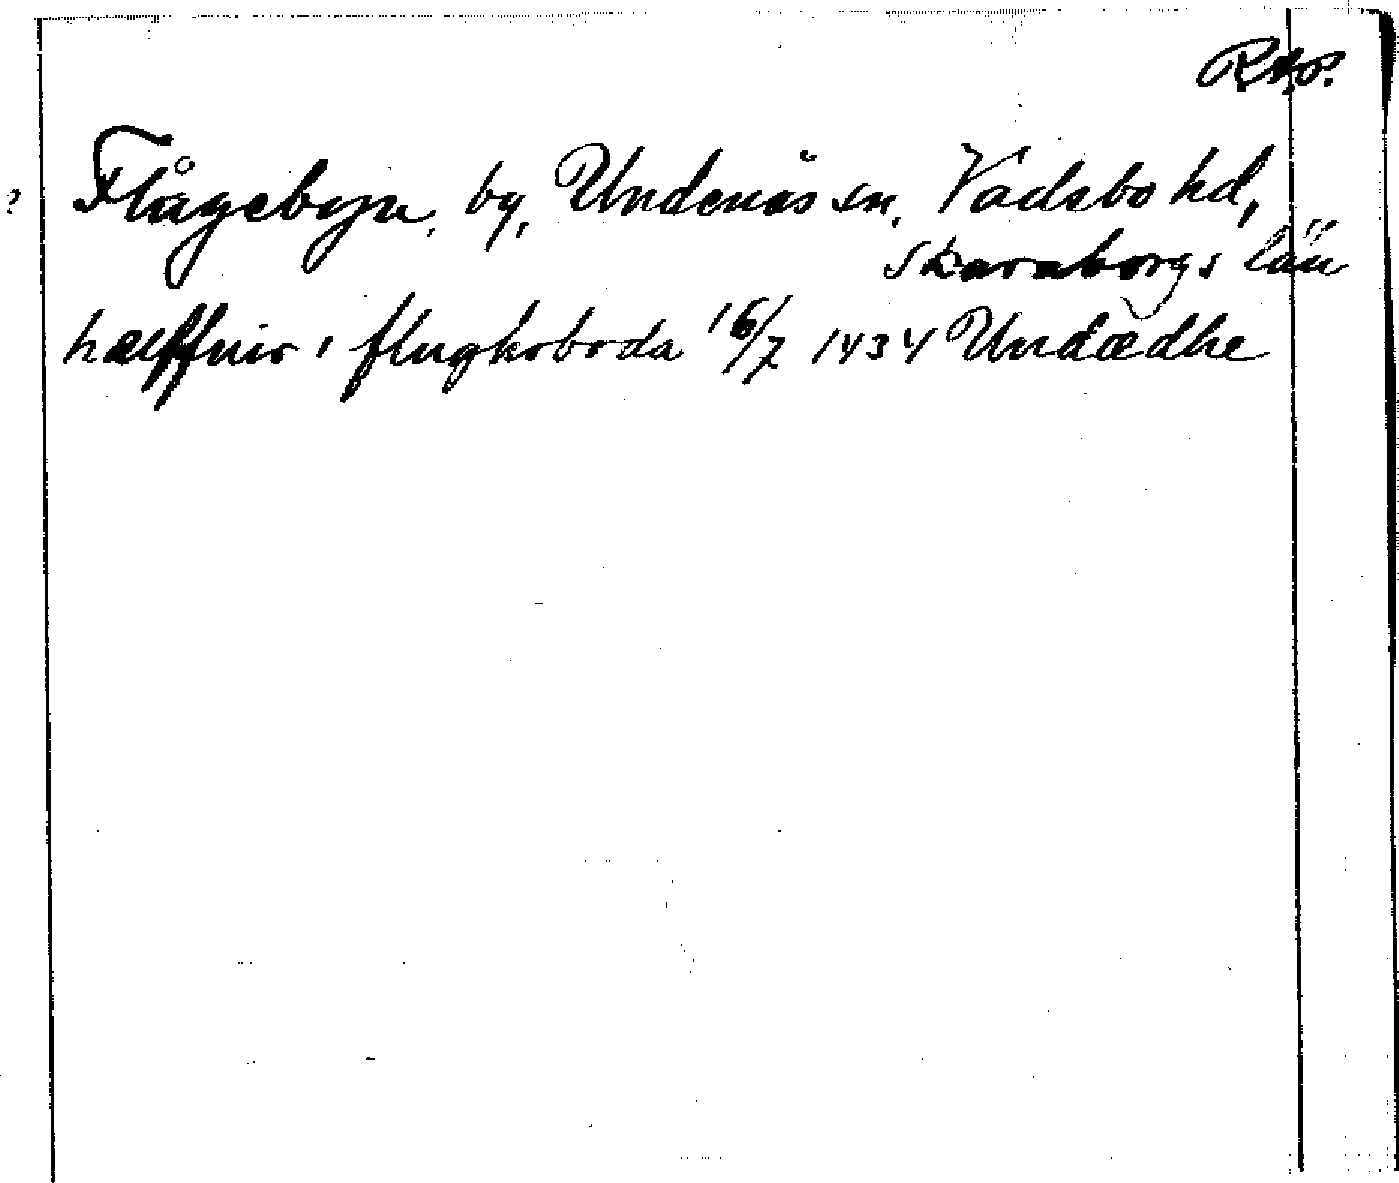 Rap.
? Flågebyn, by, Undenäs sn, Vadsbo hd,
Skaraborgs län
hælffnir i flughoboda 16/7 1434 Undædhe